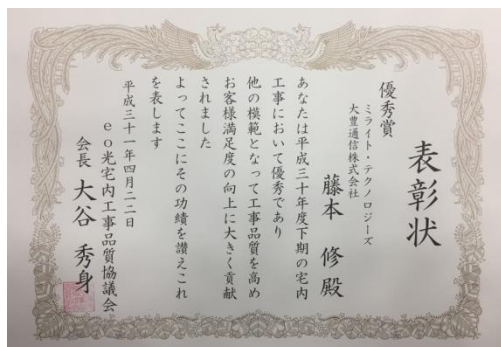 表彰状
優秀賞
ミライト・テクノロジーズ
大豊通信株式会社
藤本 修殿
あなたは平成三十年度下期の宅内
工事において優秀であり
他の模範となって工事品質を高め
お客様満足度の向上に大きく貢献
されました
よってここにその功績を讃えこれ
を表します
平成三十一年四月二二日
eo光宅内工事品質協議会
会長 大谷 秀身